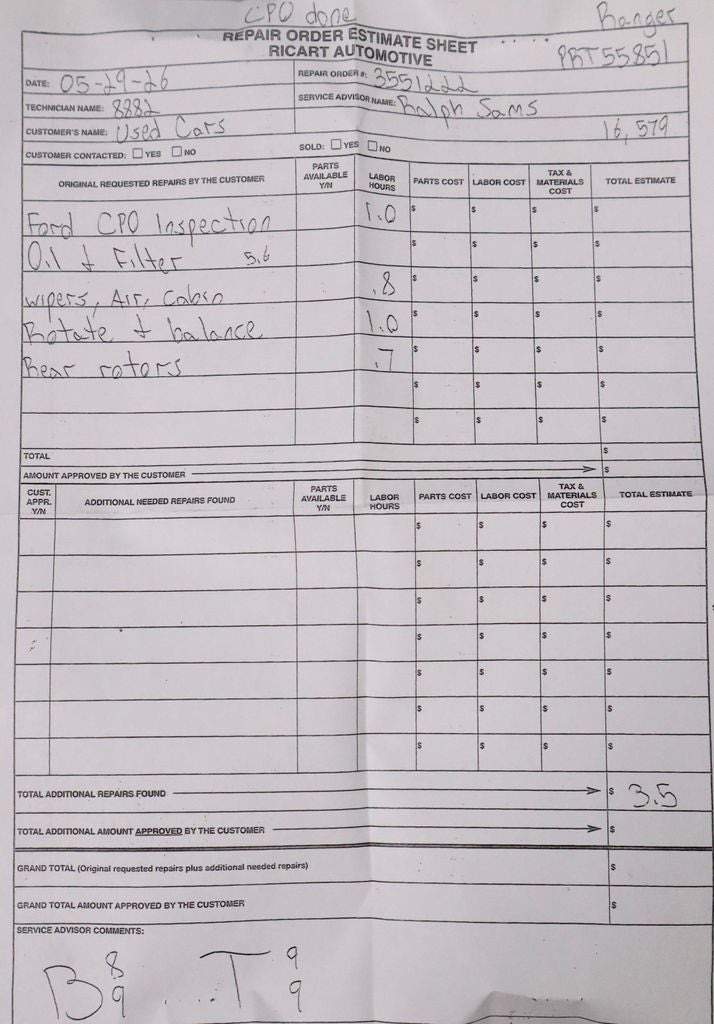 CPO done
Ranger
REPAIR ORDER ESTIMATE SHEET
RICART AUTOMOTIVE
PRT55851
DATE: 05-29-26
REPAIR ORDER #: 3551222
TECHNICIAN NAME: 8882
SERVICE ADVISOR NAME: Ralph Sams
CUSTOMER'S NAME: Used Cars
16,579
CUSTOMER CONTACTED: YES NO SOLD: YES NO
ORIGINAL REQUESTED REPAIRS BY THE CUSTOMER PARTS AVAILABLE Y/N LABOR HOURS PARTS COST LABOR COST TAX & MATERIALS COST TOTAL ESTIMATE
Ford CPO Inspection 1.0 $ $ $ $
Oil & Filter 5.6 $ $ $ $
wipers, Air, Cabin .8 $ $ $ $
Rotate & balance 1.0 $ $ $ $
Rear rotors .7 $ $ $ $
$ $ $ $
$ $ $ $
TOTAL $
AMOUNT APPROVED BY THE CUSTOMER $
CUST. APPR. Y/N ADDITIONAL NEEDED REPAIRS FOUND PARTS AVAILABLE Y/N LABOR HOURS PARTS COST LABOR COST TAX & MATERIALS COST TOTAL ESTIMATE
$ $ $ $
$ $ $ $
$ $ $ $
$ $ $ $
$ $ $ $
$ $ $ $
$ $ $ $
TOTAL ADDITIONAL REPAIRS FOUND $ 3.5
TOTAL ADDITIONAL AMOUNT APPROVED BY THE CUSTOMER $
GRAND TOTAL (Original requested repairs plus additional needed repairs) $
GRAND TOTAL AMOUNT APPROVED BY THE CUSTOMER $
SERVICE ADVISOR COMMENTS:
B 8 9 T 9 9